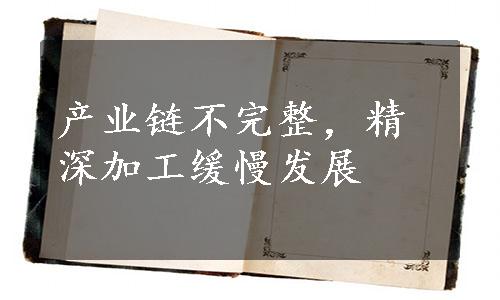 产业链不完整，精
深加工缓慢发展